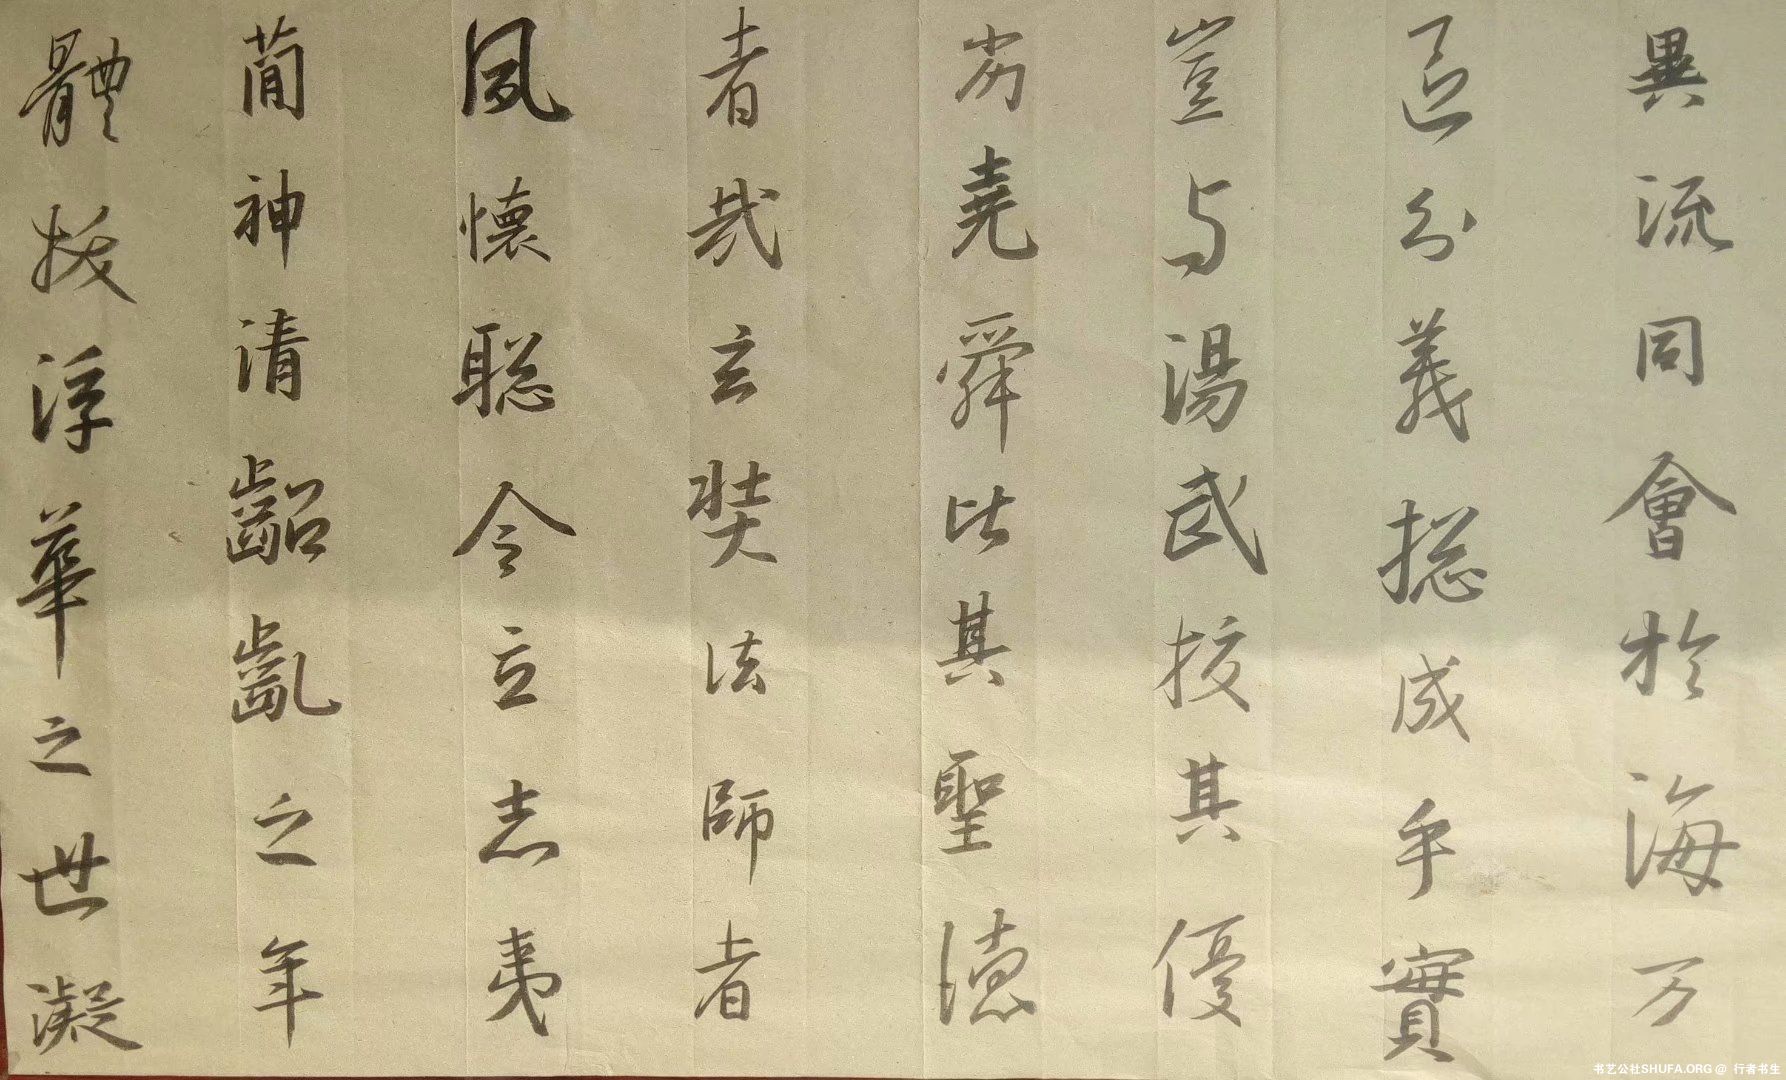 異流同會於海万
區分義揔成乎實
豈与湯武挍其優
劣堯舜比其聖德
者哉玄奘法師者
夙懷聡令立志夷
蕳神清齠齓之年
體拔浮華之世凝
书艺公社SHUFA.ORG @ 行者书生